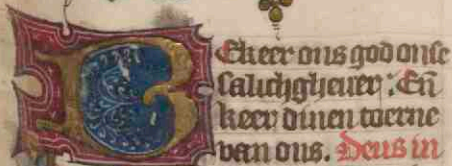 Bekeer ons god onse
salichgheuer. En̄
keer dinen toerne
van ons. Deus in